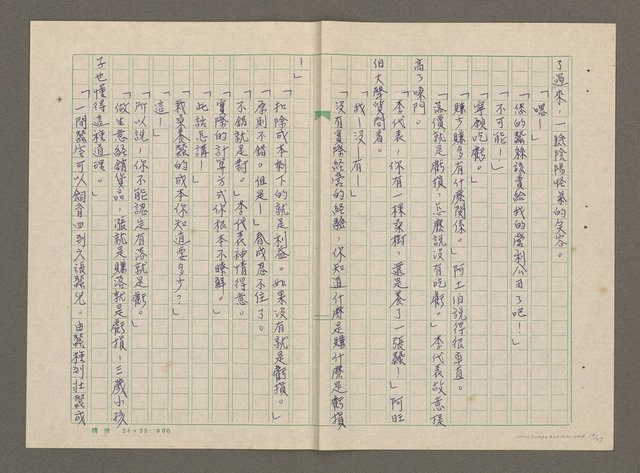 了過來，一臉陰陽怪氣的笑容。
「嗯！」
「您的蠶絲該賣給我的營利公司了吧！」
「不可能！」
「寧願吃虧。」
「賺少賺多有什麼關係。」阿土伯說得很率直。
「落價就是虧損，怎麼說沒有吃虧。」李代表故意提
高了嗓門。
「李代表，你有一棵桑樹，還是養了一張蠶！」阿旺
伯大聲質問着。
「我！沒！有！」
「沒有實際經營的經驗，你知道什麼是賺什麼是虧損
！」
「扣除成本剩下的就是利益。如果沒有就是虧損。」
「原則不錯。但是！」春成忍不住了。
「不錯就是對。」李代表神情得意。
「實際的計算方式你根本不瞭解。」
「此話怎講！」
「栽桑養蠶的成本你知道要多少？」
「這！」
「所以說！你不能認定有落就是虧。」
「做生意認銷貨品，漲就是賺落就是虧損！三歲小孩
子也懂得這種道理。」
「一間蠶室可以飼育四到六張蠶兒。由蟻種到壯蠶成
精美 24×25=600